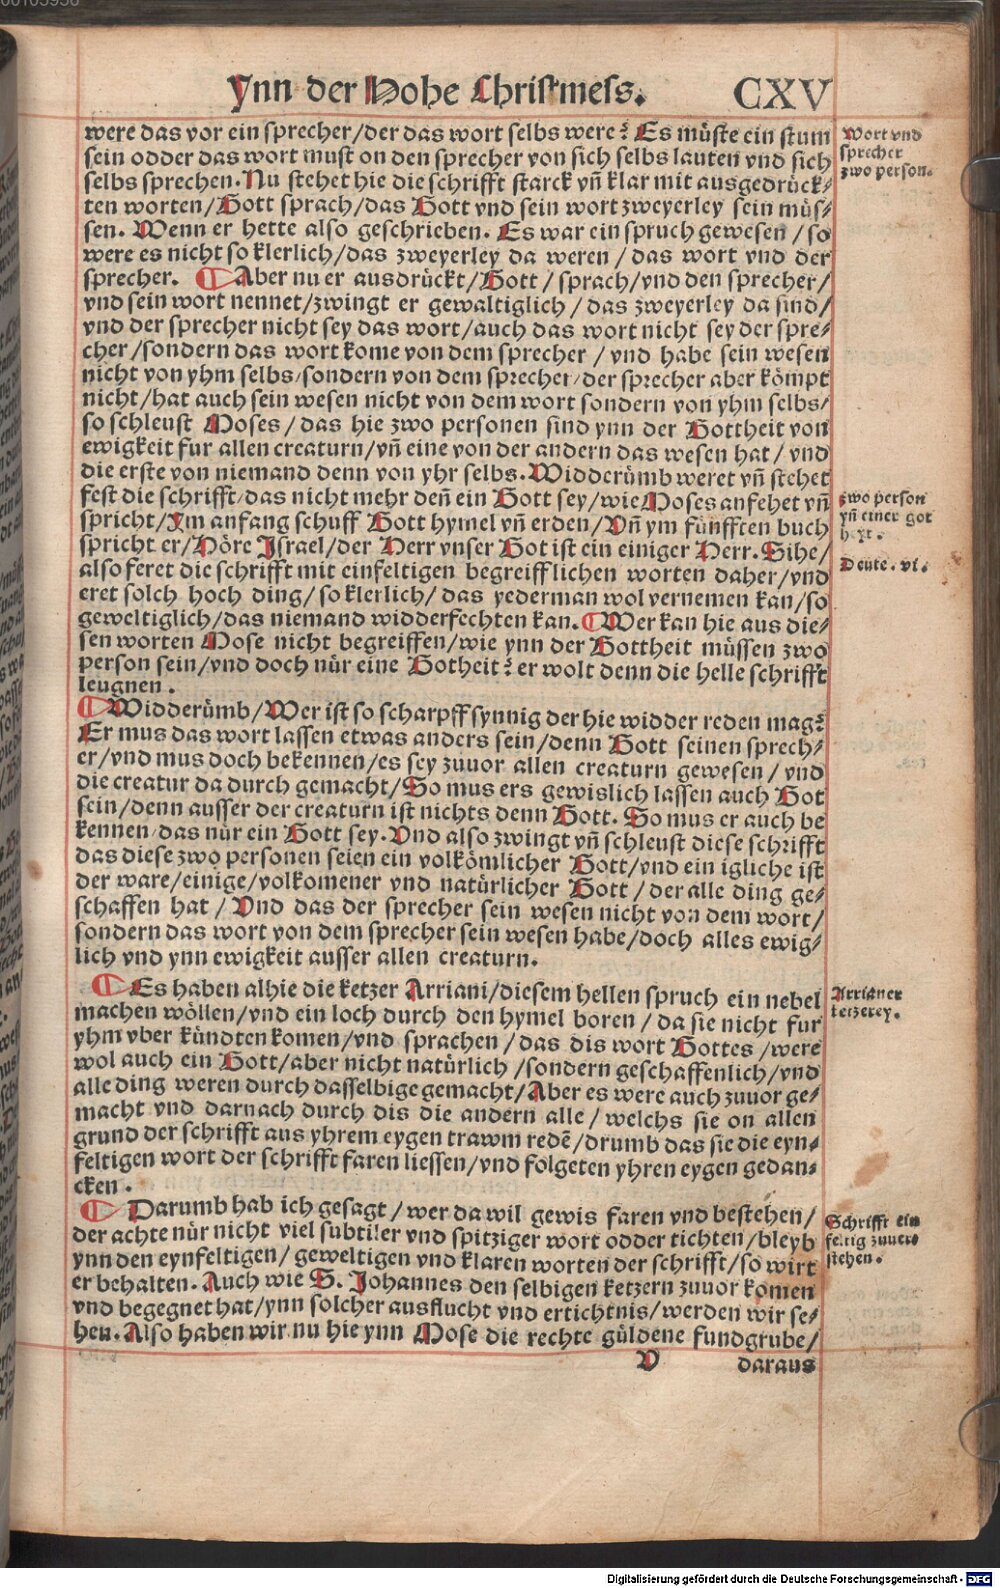 Ynn der Hohe Christmess. CXV
were das vor ein sprecher/der das wort selbs were? Es müste ein stum
sein odder das wort must on den sprecher von sich selbs lauten vnd sich
selbs sprechen. Nu stehet hie die schrifft starck vn̄ klar mit ausgedrück⸗
ten worten/Gott sprach/das Gott vnd sein wort zweyerley sein müs⸗
sen. Wenn er hette also geschrieben. Es war ein spruch gewesen/so
were es nicht so klerlich/das zweyerley da weren/das wort vnd der
sprecher. ¶ Aber nu er ausdrückt/Gott/sprach/vnd den sprecher/
vnd sein wort nennet/zwingt er gewaltiglich/das zweyerley da sind/
vnd der sprecher nicht sey das wort/auch das wort nicht sey der spre⸗
cher/sondern das wort kome von dem sprecher/vnd habe sein wesen
nicht von yhm selbs/sondern von dem sprecher/der sprecher aber kömpt
nicht/hat auch sein wesen nicht von dem wort sondern von yhm selbs/
so schleust Moses/das hie zwo personen sind ynn der Gottheit von
ewigkeit fur allen creaturn/vn̄ eine von der andern das wesen hat/vnd
die erste von niemand denn von yhr selbs. Widderümb weret vn̄ stehet
fest die schrifft/das nicht mehr den̄ ein Gott sey/wie Moses anfehet vn̄
spricht/Im anfang schuff Gott hymel vn̄ erden/Vn̄ ym fünfften buch
spricht er/Höre Israel/der Herr vnser Got ist ein einiger Herr. Sihe/
also feret die schrifft mit einfeltigen begreifflichen worten daher/vnd
eret solch hoch ding/so klerlich/das yederman wol vernemen kan/so
geweltiglich/das niemand widderfechten kan. ¶ Wer kan hie aus die⸗
sen worten Mose nicht begreiffen/wie ynn der Gottheit müssen zwo
person sein/vnd doch nür eine Gotheit? er wolt denn die helle schrifft
leugnen.
¶ Widderümb/Wer ist so scharpffsynnig der hie widder reden mag?
Er mus das wort lassen etwas anders sein/denn Gott seinen sprech⸗
er/vnd mus doch bekennen/es sey zuuor allen creaturn gewesen/vnd
die creatur da durch gemacht/So mus ers gewislich lassen auch Got
sein/denn ausser der creaturn ist nichts denn Gott. So mus er auch be
kennen/das nür ein Gott sey. Vnd also zwingt vn̄ schleust diese schrifft
das diese zwo personen seien ein volkömlicher Gott/vnd ein igliche ist
der ware/einige/volkomener vnd natürlicher Gott/der alle ding ge⸗
schaffen hat/Vnd das der sprecher sein wesen nicht von dem wort/
sondern das wort von dem sprecher sein wesen habe/doch alles ewig⸗
lich vnd ynn ewigkeit ausser allen creaturn.
¶ Es haben alhie die ketzer Arriani/diesem hellen spruch ein nebel
machen wöllen/vnd ein loch durch den hymel boren/da sie nicht fur
yhm vber kündten komen/vnd sprachen/das dis wort Gottes/were
wol auch ein Gott/aber nicht natürlich/sondern geschaffenlich/vnd
alle ding weren durch dasselbige gemacht/Aber es were auch zuuor ge⸗
macht vnd darnach durch dis die andern alle/welchs sie on allen
grund der schrifft aus yhrem eygen trawm redē/drumb das sie die eyn⸗
feltigen wort der schrifft faren liessen/vnd folgeten yhren eygen gedan⸗
cken.
¶ Darumb hab ich gesagt/wer da wil gewis faren vnd bestehen/
der achte nür nicht viel subtiler vnd spitziger wort odder tichten/bleyb
ynn den eynfeltigen/geweltigen vnd klaren worten der schrifft/so wirt
er behalten. Auch wie S. Johannes den selbigen ketzern zuuor komen
vnd begegnet hat/ynn solcher ausflucht vnd ertichtnis/werden wir se⸗
hen. Also haben wir nu hie ynn Mose die rechte güldene fundgrube/
V daraus
Wort vnd
sprecher
zwo person.
zwo person
yn̄ einer got
heit.
Deute. vi.
Arrianer
ketzerey.
Schrifft ein
feltig zuuer⸗
stehen.
Digitalisierung gefördert durch die Deutsche Forschungsgemeinschaft - DFG